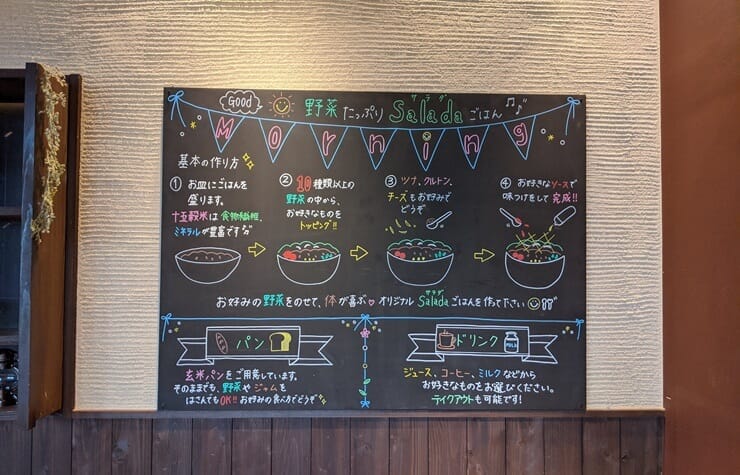 Good
野菜 たっぷり Salada ごはん
サラダ
Morning
基本の作り方
① お皿にごはんを
盛ります。
十五穀米は食物繊維、
ミネラルが豊富です
② 10種類以上の
野菜の中から、
お好きなものを
トッピング!!
③ ツナ、クルトン、
チーズもお好みで
どうぞ
④ お好きなソースで
味つけをして完成!!
お好みの野菜をのせて、体が喜ぶ♡オリジナル Saladaごはんを作て下さい
サラダ
パン
玄米パンをご用意しています。
そのままでも、野菜やジャムを
はさんでもOK!! お好みの食べ方でどうぞ
ドリンク
MILK
ジュース、コーヒー、ミルクなどから
お好きなものをお選びください。
テイクアウトも可能です!